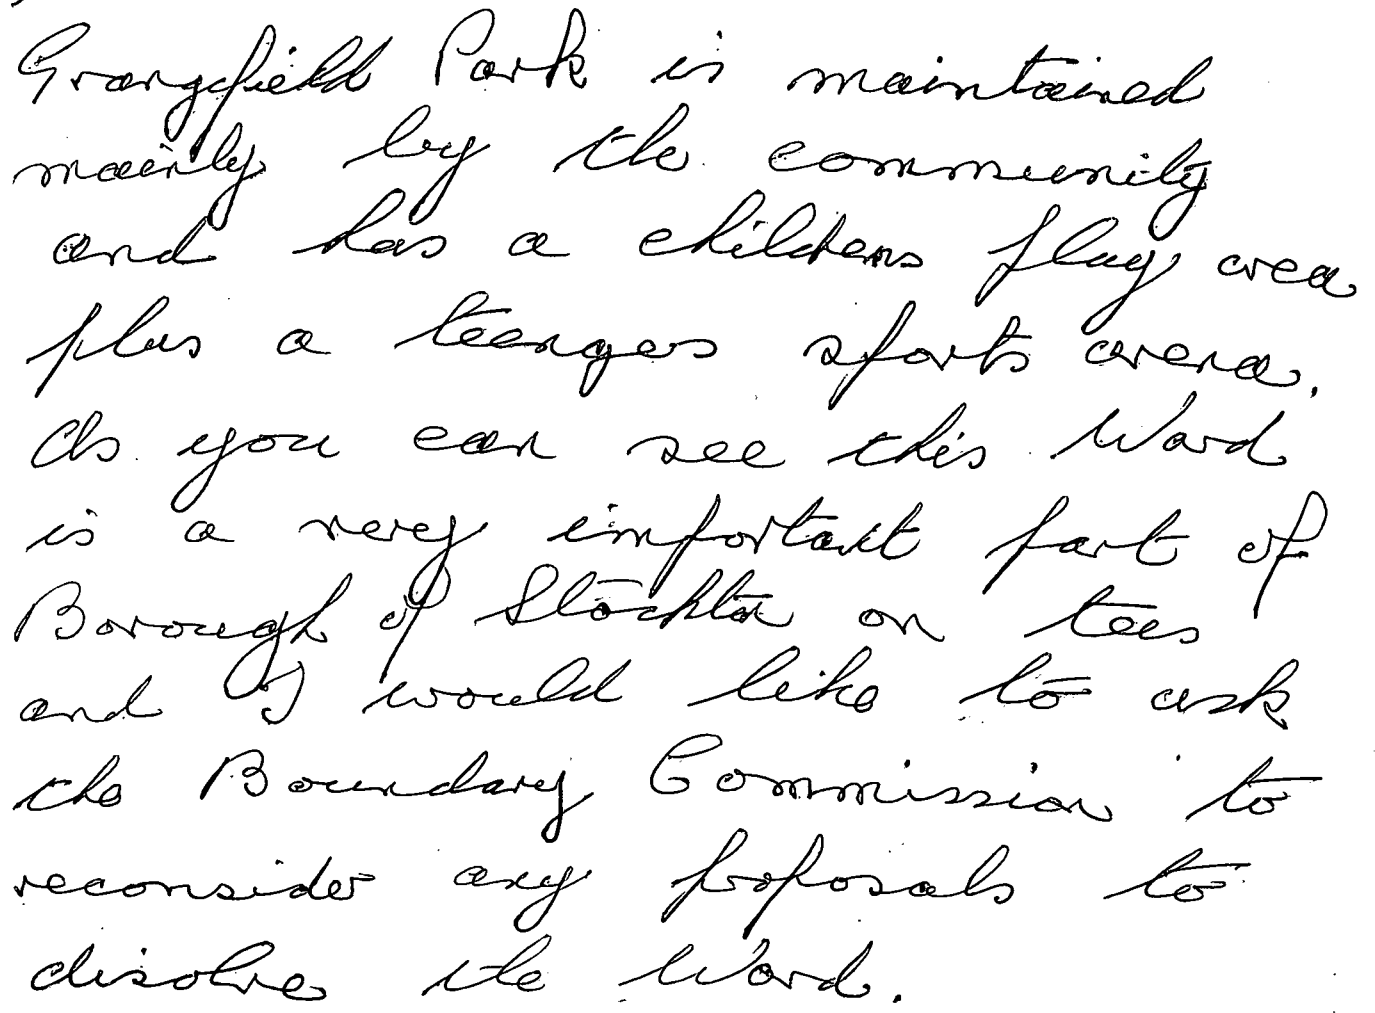 Grangefield Park is maintained
mainly by the community
and has a childrens play area
plus a teengers sports arena.
As you can see this Ward
is a very important part of
Borough of Stockton on tees
and I would like to ask
the Boundary Commission to
reconsider any proposals to
disolve the Ward.